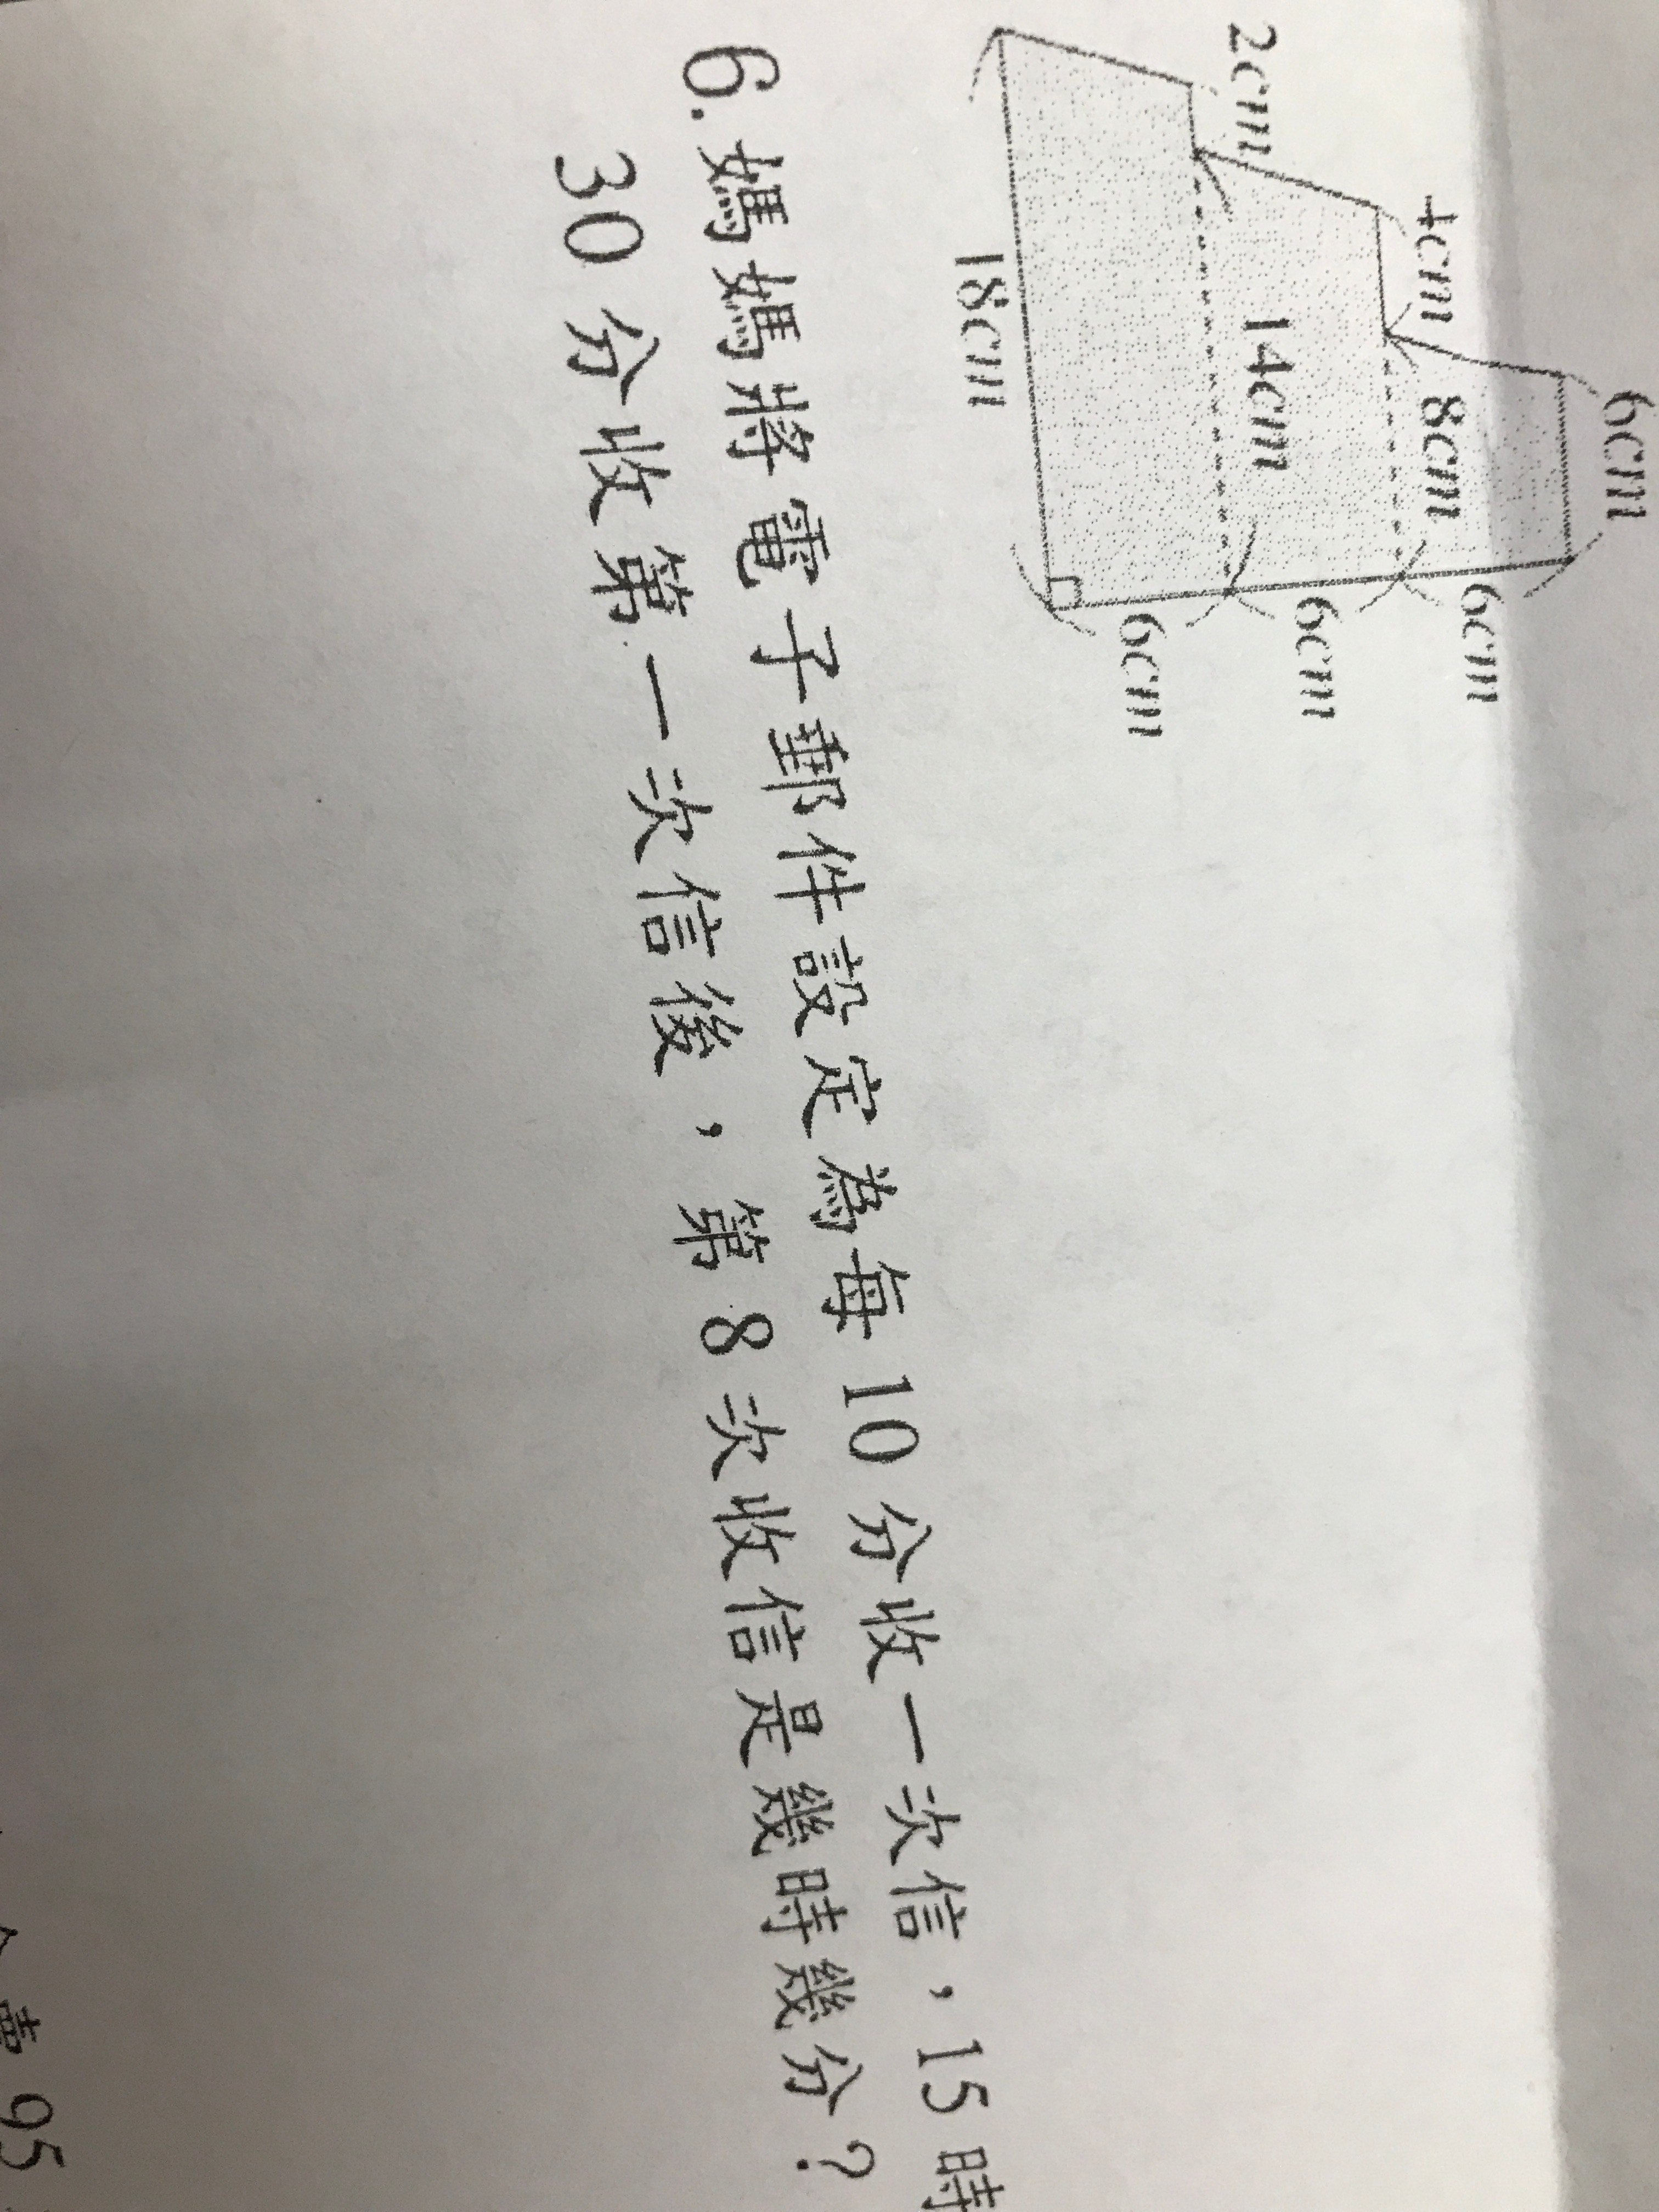 6cm
4cm
8cm
6cm
2cm
14cm
6cm
6cm
18cm
6.媽媽將電子郵件設定為每10分收一次信，15時
30分收第一次信後，第8次收信是幾時幾分？
95